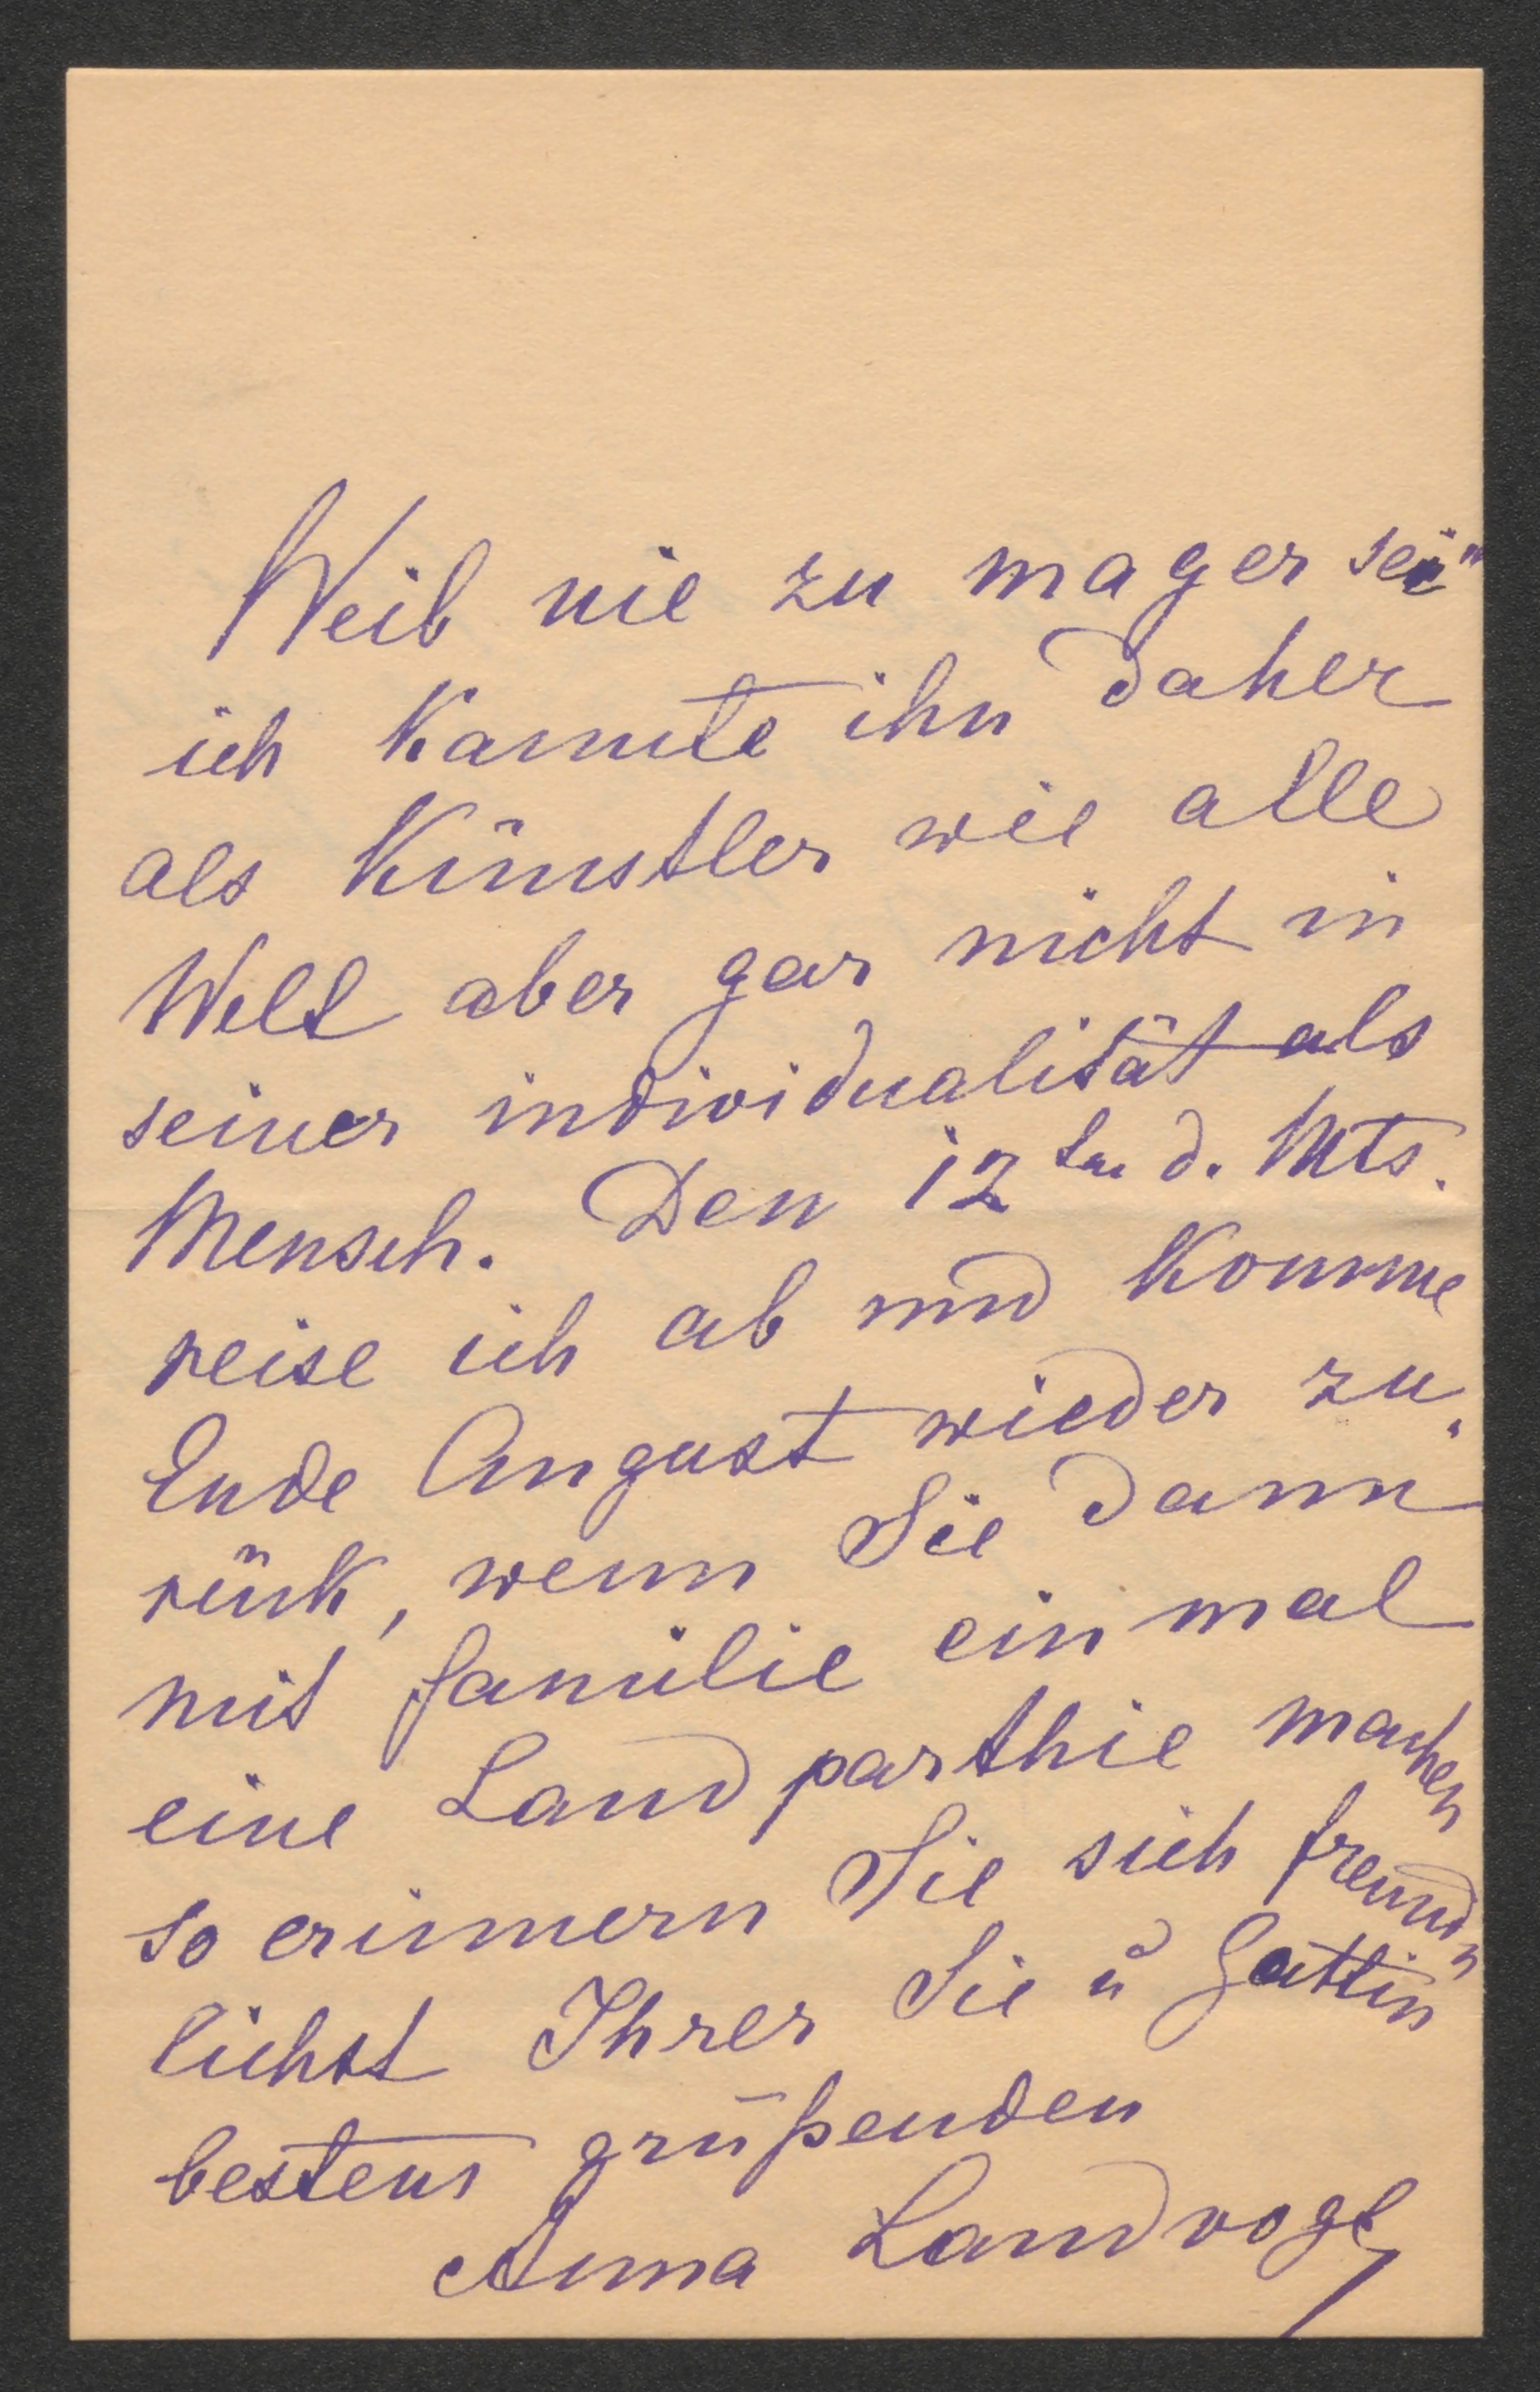 Weib nie zu mager sei"
ich kannte ihn daher
als Künstler wie alle
Welt aber gar nicht in
seiner individualität als
Mensch. Den 12ten d. Mts.
reise ich ab und komme
Ende August wieder zu-
rück, wenn Sie dann
mit familie einmal
eine Landparthie machen
so erinnern Sie sich freund-
lichst Ihrer Sie u Gattin
bestens grüßenden
Anna Landvogt